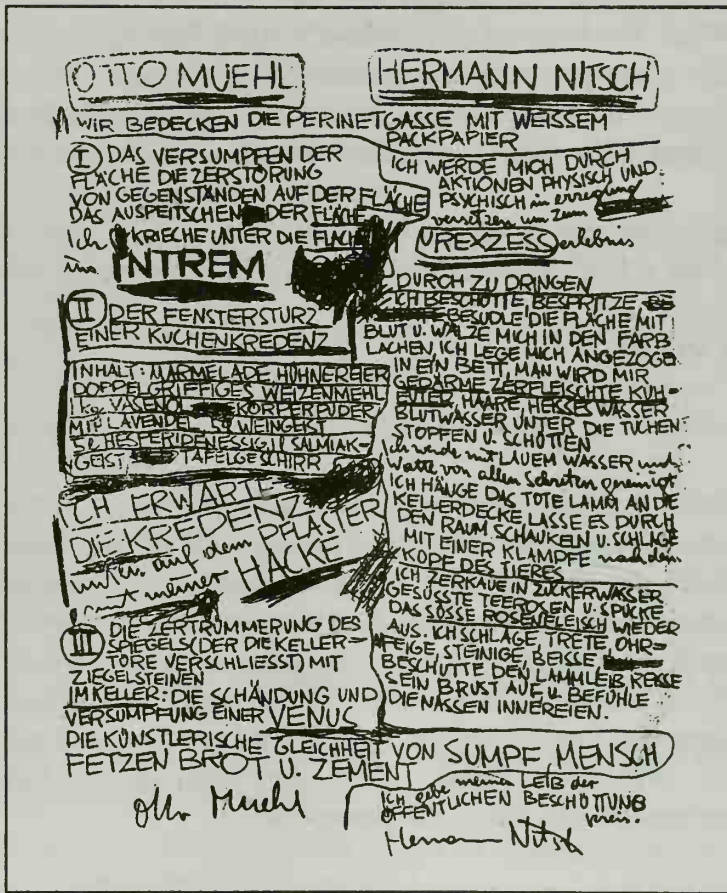 OTTO MUEHL
HERMANN NITSCH
WIR BEDECKEN DIE PERINETGASSE MIT WEISSEM
PACKPAPIER
I DAS VERSUMPFEN DER
FLÄCHE DIE ZERSTÖRUNG
VON GEGENSTÄNDEN AUF DER FLÄCHE
DAS AUSPEITSCHEN DER FLÄCHE
ich KRIECHE UNTER DIE FLÄCHE
ins INTREM
II DER FENSTERSTURZ
EINER KUCHENKREDENZ
INHALT: MARMELADE, HÜHNEREIER
DOPPELGRIFFIGES WEIZENMEHL
1 kg VASENOL KÖRPERPUDER
MIT LAVENDEL WEINGEIST
5l HESPERIDENESSIG 1l SALMIAK-
GEIST TAFELGESCHIRR
ICH ERWARTE
DIE KREDENZ
unten auf dem PFLASTER
mit meiner HACKE
III DIE ZERTRÜMMERUNG DES
SPIEGELS (DER DIE KELLER-
TÖRE VERSCHLIESST) MIT
ZIEGELSTEINEN
IM KELLER: DIE SCHÄNDUNG UND
VERSUMPFUNG EINER VENUS
DIE KÜNSTLERISCHE GLEICHHEIT VON SUMPF, MENSCH
FETZEN BROT U. ZEMENT
Otto Muehl
ICH WERDE MICH DURCH
AKTIONEN PHYSISCH UND
PSYCHISCH in erregung
versetzen um zum
UREXZESS erlebnis
DURCH ZU DRINGEN
ICH BESCHÜTTE BESPRITZE
BESUDLE DIE FLÄCHE MIT
BLUT U. WÄLZE MICH IN DEN FARB
LACHEN ICH LEGE MICH ANGEZOGEN
IN EIN BETT, MAN WIRD MIR
GEDÄRME ZERFLEISCHTE KUH=
EUTER, HAARE, HEISSES WASSER
BLUTWASSER UNTER DIE TUCHENT
STOPFEN U. SCHÜTTEN
ich werde mit LAUEM WASSER und
Watte von allen Sekreten gereinigt
ICH HÄNGE DAS TOTE LAMM AN DIE
KELLERDECKE LASSE ES DURCH
DEN RAUM SCHAUKELN U. SCHLAGE
MIT EINER KLAMPFE nach dem
KOPF DES TIERES
ICH ZERKAUE IN ZUCKERWASSER
GESÜSSTE TEEROSEN U. SPUCKE
DAS SÜSSE ROSENFLEISCH WIEDER
AUS. ICH SCHLAGE, TRETE, OHR=
FEIGE, STEINIGE, BEISSE
BESCHÜTTE DEN LAMMLEIB REISSE
SEIN BRUST AUF U. BEFÜHLE
DIE NASSEN INNEREIEN.
ICH gebe meinen LEIB der
ÖFFENTLICHEN BESCHÜTTUNG
preis.
Hermann Nitsch